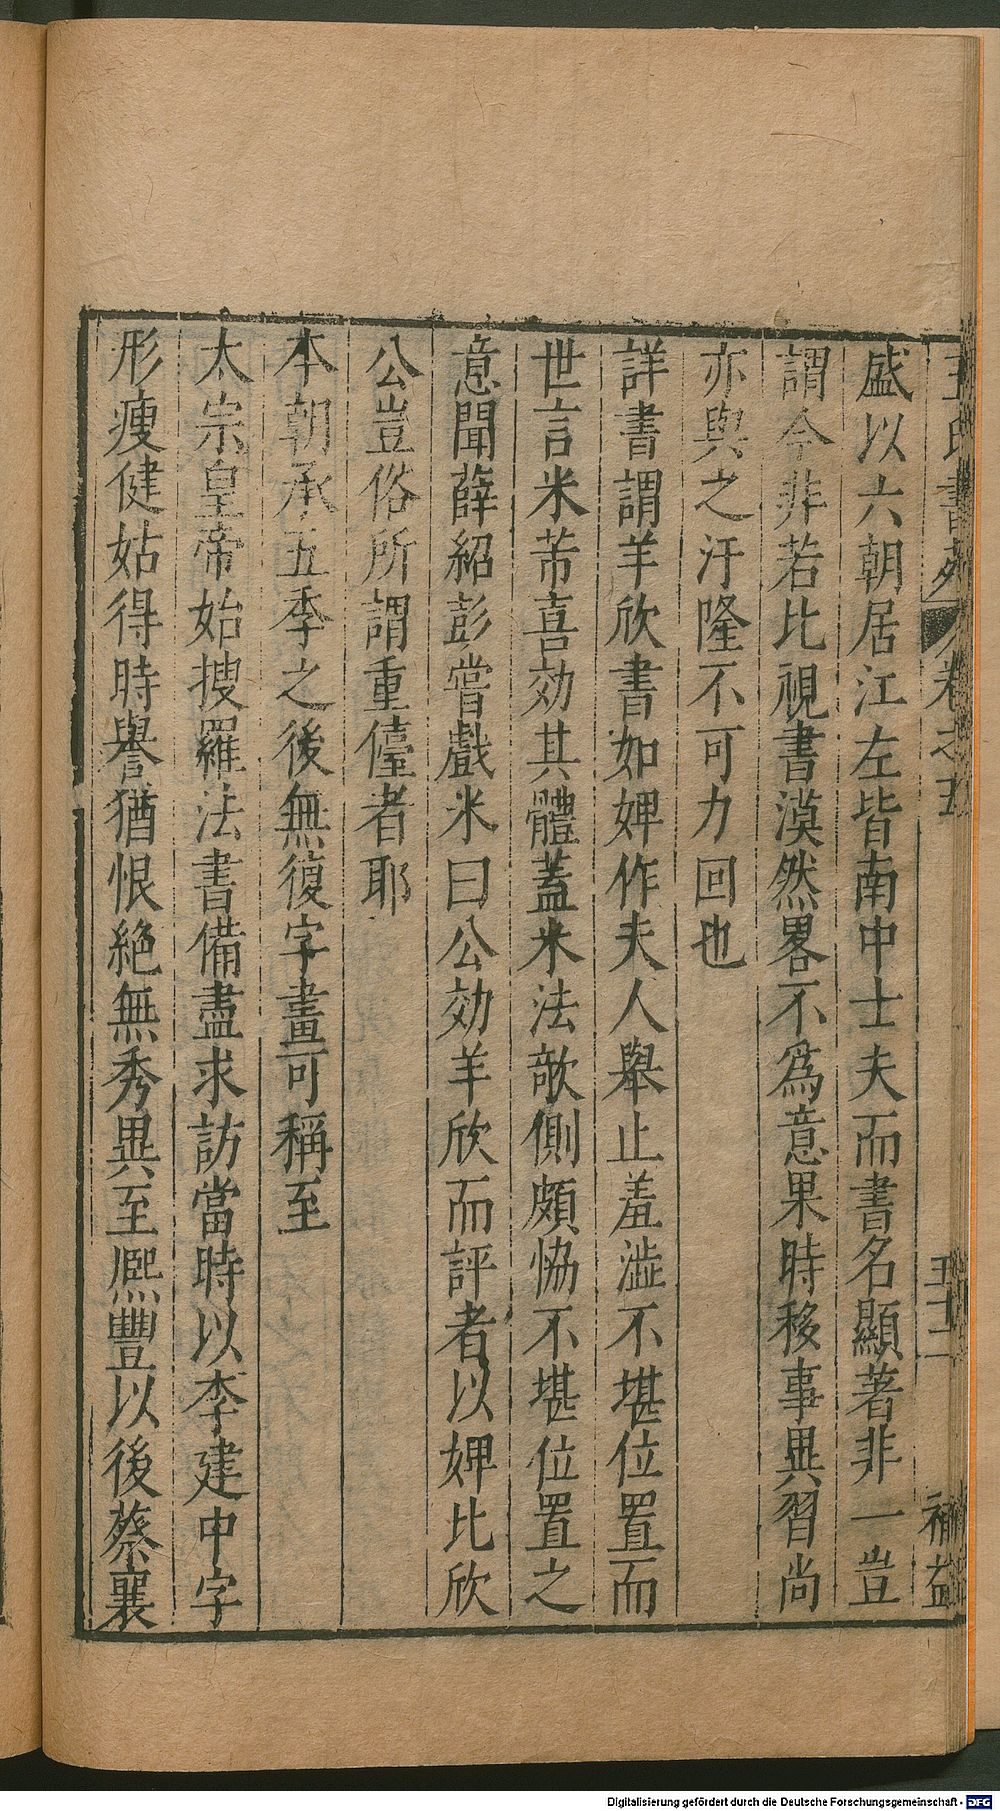 王氏書苑 卷之五 五十二 補益
盛以六朝居江左皆南中士夫而書名顯著非一豈
謂今非若比視書漠然畧不爲意果時移事異習尚
亦與之汙隆不可力回也
詳書謂羊欣書如婢作夫人舉止羞澁不堪位置而
世言米芾喜効其體蓋米法欹側頗恊不堪位置之
意聞薛紹彭嘗戲米曰公効羊欣而評者以婢比欣
公豈俗所謂重儓者耶
本朝承五季之後無復字畫可稱至
太宗皇帝始搜羅法書備盡求訪當時以李建中字
形瘦健姑得時譽猶恨絶無秀異至熈豐以後蔡襄
Digitalisierung gefördert durch die Deutsche Forschungsgemeinschaft - DFG